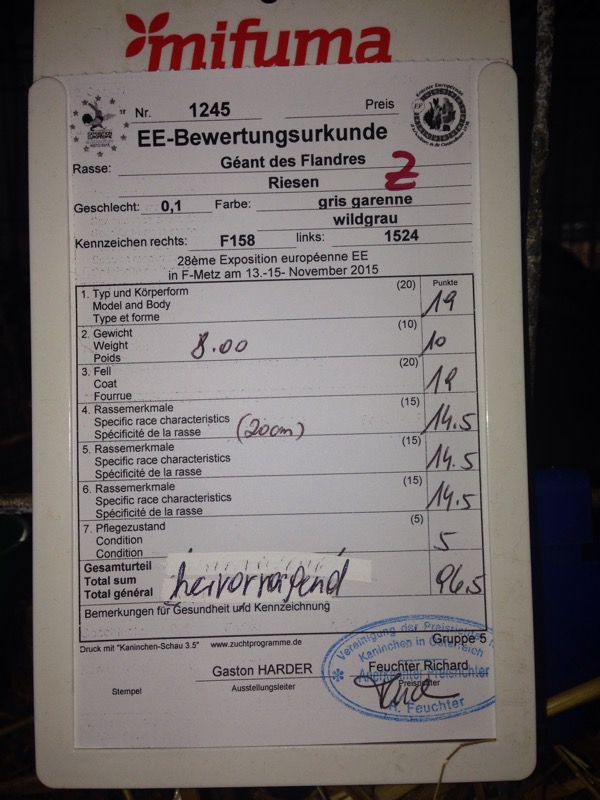 mifuma
Nr. 1245 Preis
EE-Bewertungsurkunde
Rasse: Géant des Flandres
Riesen Z
Geschlecht: 0,1 Farbe: gris garenne
wildgrau
Kennzeichen rechts: F158 links: 1524
28ème Exposition européenne EE
in F-Metz am 13.-15- November 2015
1. Typ und Körperform (20) Punkte
Model and Body 19
Type et forme
2. Gewicht (10)
Weight 8.00 10
Poids
3. Fell (20)
Coat 19
Fourrue
4. Rassemerkmale (15)
Specific race characteristics (20cm) 14.5
Spécificité de la rasse
5. Rassemerkmale (15)
Specific race characteristics 14.5
Spécificité de la rasse
6. Rassemerkmale (15)
Specific race characteristics 14.5
Spécificité de la rasse
7. Pflegezustand (5)
Condition 5
Condition
Gesamturteil
Total sum hervorragend 96.5
Total général
Bemerkungen für Gesundheit und Kennzeichnung
Druck mit "Kaninchen-Schau 3.5" www.zuchtprogramme.de Gruppe 5
Vereinigung der Preisrichter
Kaninchen in Österreich
Gaston HARDER Feuchter Richard
Anerkannter Preisrichter
Stempel Ausstellungsleiter Preisrichter
R. Feuchter